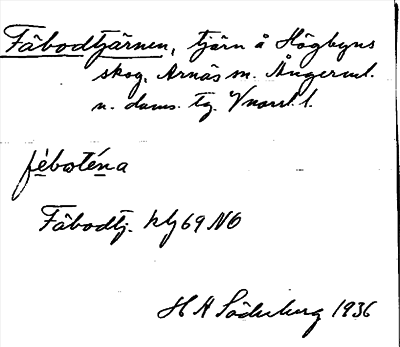 Fäbodtjärnen, tjärn å Högbyns
skog, Arnäs sn. Ångerml.
n. doms. tg. Vnorrl. l.
fèbɷtén a
Fäbodtj. ktj 69 NO
H A Söderberg 1936